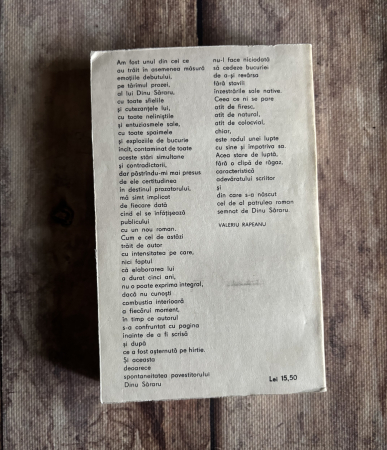 Am fost unul din cei ce
au trăit în asemenea măsură
emoțiile debutului,
pe tărîmul prozei,
al lui Dinu Săraru,
cu toate sfielile
și cutezanțele lui,
cu toate neliniștile
și entuziasmele sale,
cu toate spaimele
și exploziile de bucurie
încît, contaminat de toate
aceste stări simultane
și contradictorii,
dar păstrîndu-mi mai presus
de ele certitudinea
în destinul prozatorului,
mă simt implicat
de fiecare dată
cînd el se înfățișează
publicului
cu un nou roman.
Cum e cel de astăzi
trăit de autor
cu intensitatea pe care,
nici faptul
că elaborarea lui
a durat cinci ani,
nu o poate exprima integral,
dacă nu cunoști
combustia interioară
a fiecărui moment,
în timp ce autorul
s-a confruntat cu pagina
înainte de a fi scrisă
și după
ce a fost așternută pe hîrtie.
Și aceasta
deoarece
spontaneitatea povestitorului
Dinu Săraru
nu-l face niciodată
să cedeze bucuriei
de a-și revărsa
fără stavili
înzestrările sale native.
Ceea ce ni se pare
atît de firesc,
atît de natural,
atît de colocvial,
chiar,
este rodul unei lupte
cu sine și împotriva sa.
Acea stare de luptă,
fără o clipă de răgaz,
caracteristică
adevăratului scriitor
și
din care s-a născut
cel de al patrulea roman
semnat de Dinu Săraru.
VALERIU RAPEANU
Lei 15,50